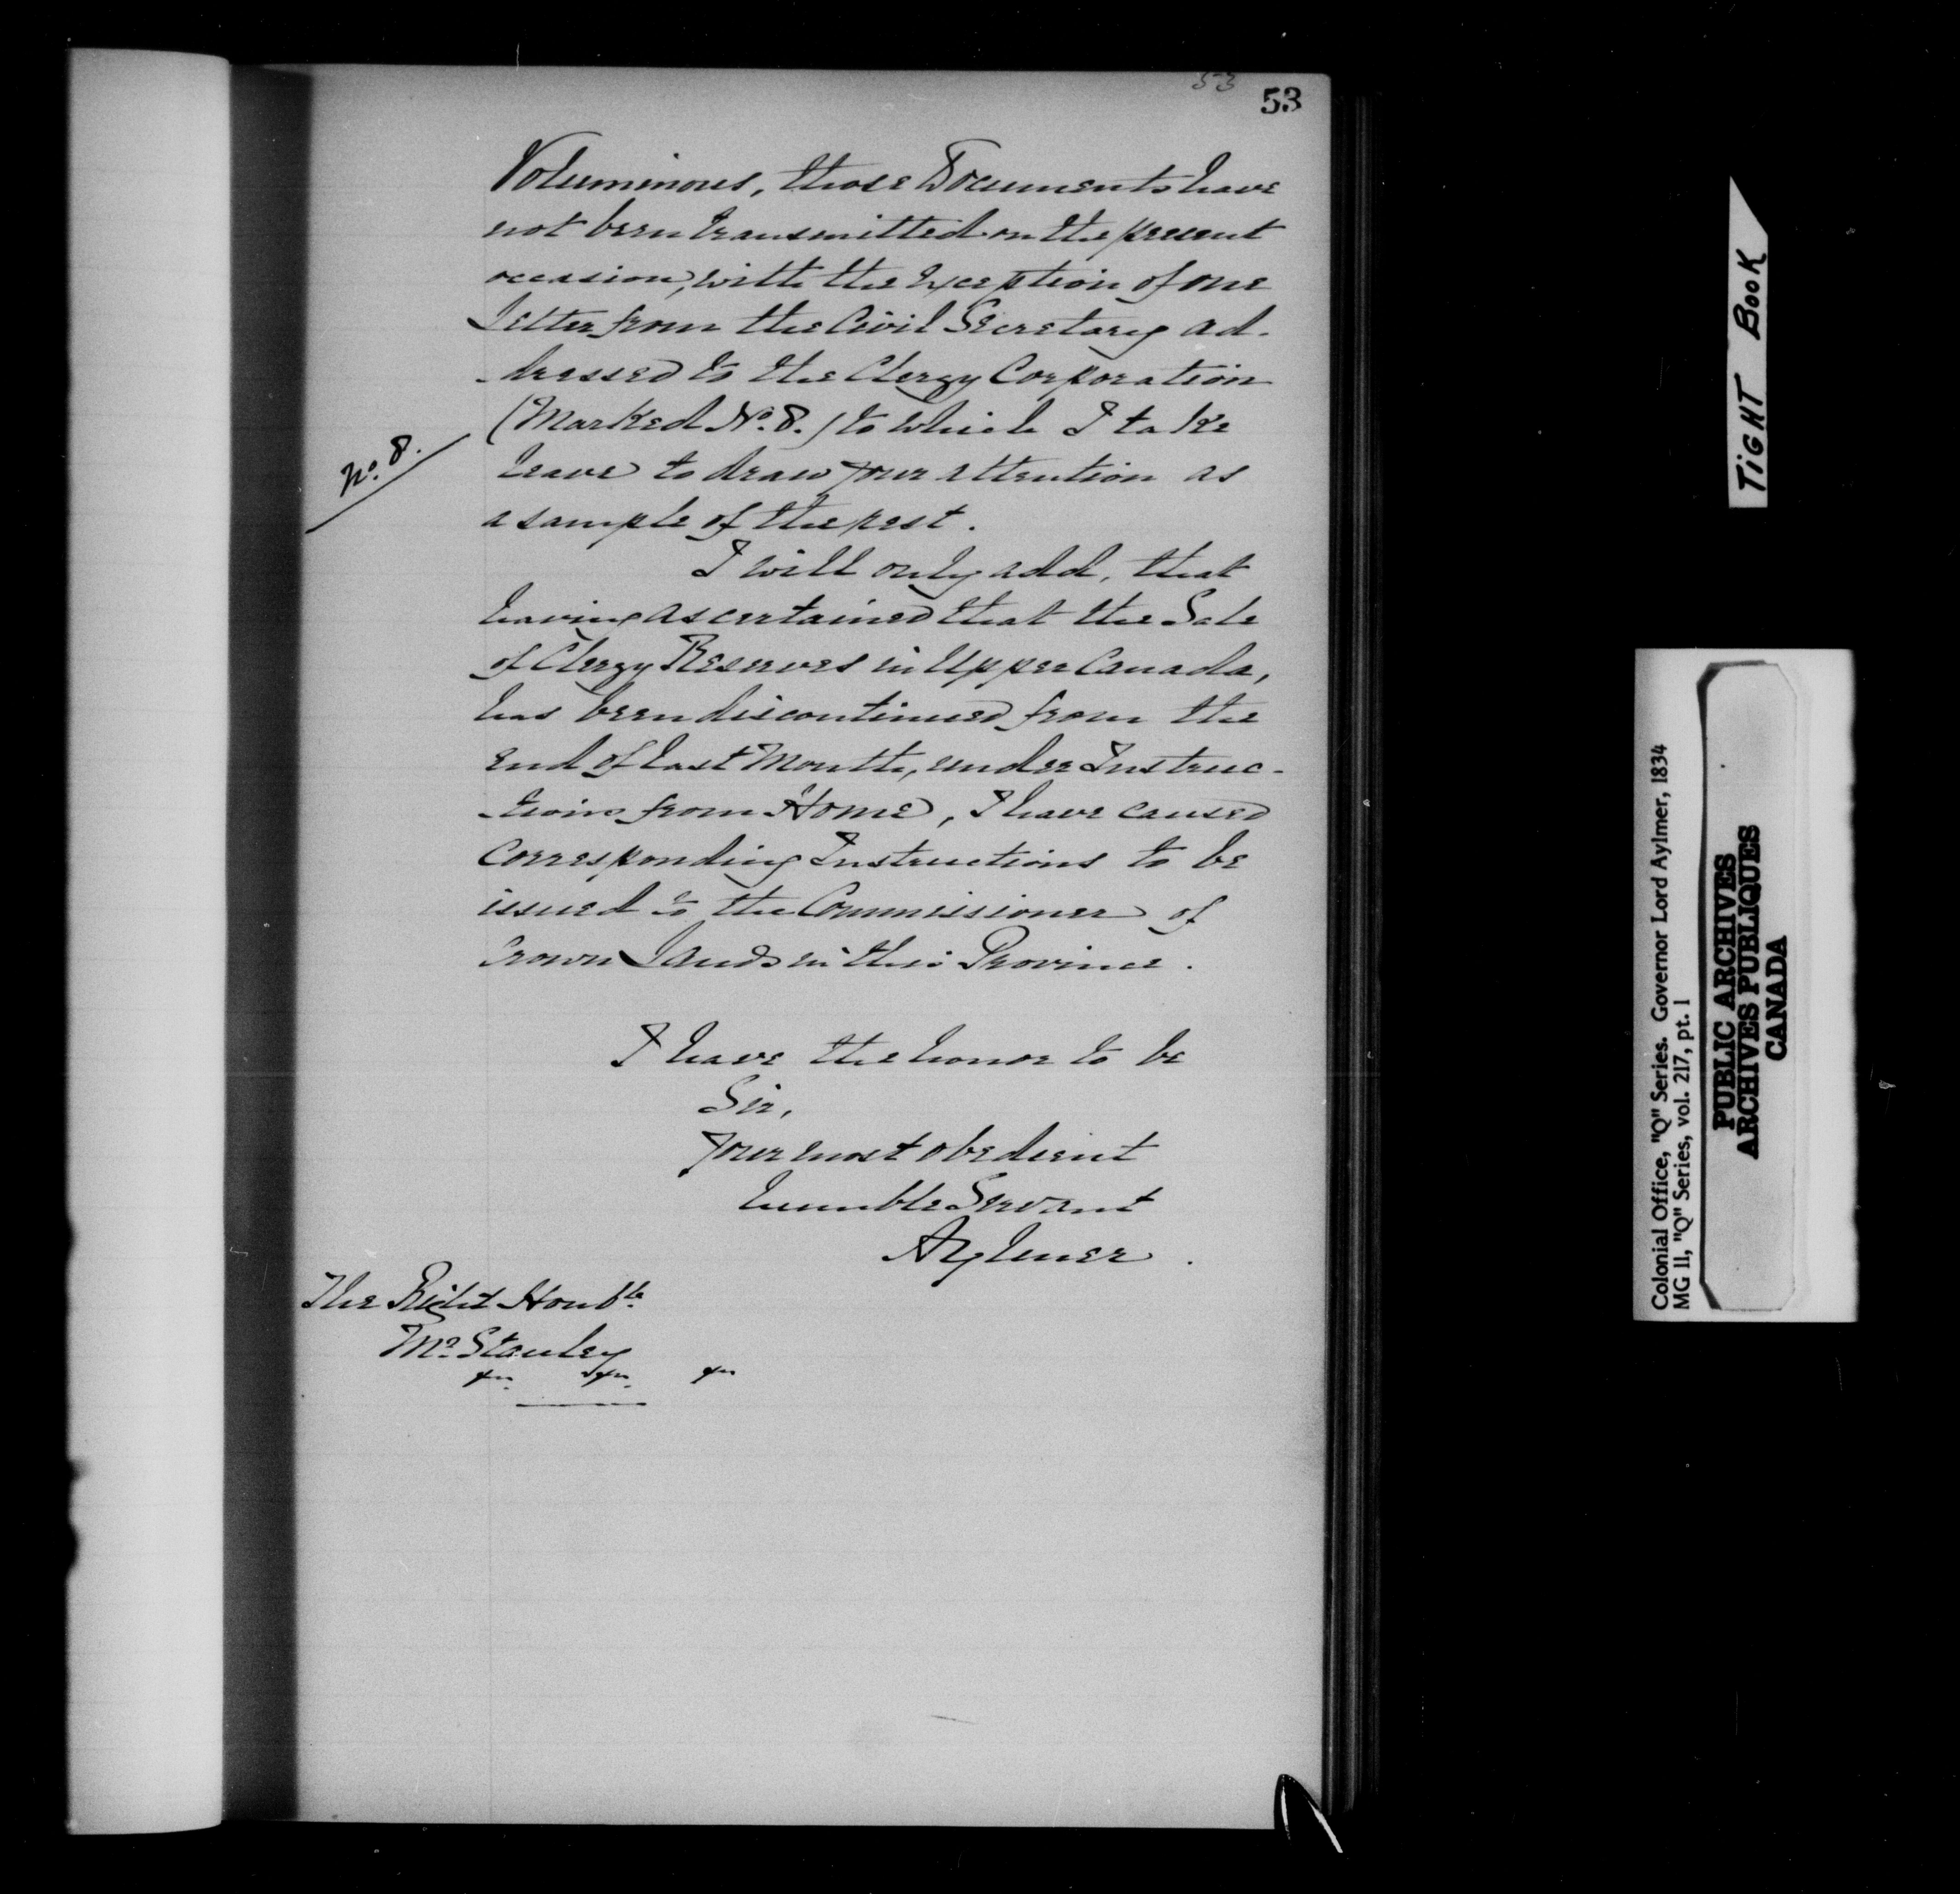 53
53
Voluminous, those Documents have
not been transmitted on the present
occasion, with the exception of one
Letter from the Civil Secretary ad-
-dressed to the Clergy Corporation
(Marked No. 8.) to which I take
leave to draw your attention as
a sample of the rest.
No. 8.
I will only add, that
having ascertained that the Sale
of Clergy Reserves in Upper Canada,
has been discontinued from the
end of last Month, under Instruc-
-tions from Home, I have caused
Corresponding Instructions to be
issued to the Commissioner of
Crown Lands in this Province.
I have the honor to be
Sir,
Your most obedient
humble Servant
Aylmer.
The Right Honble.
Mr. Stanley
&c. &c. &c
TIGHT BOOK
Colonial Office, "Q" Series. Governor Lord Aylmer, 1834
MG 11, "Q" Series, vol. 217, pt. 1
PUBLIC ARCHIVES
ARCHIVES PUBLIQUES
CANADA